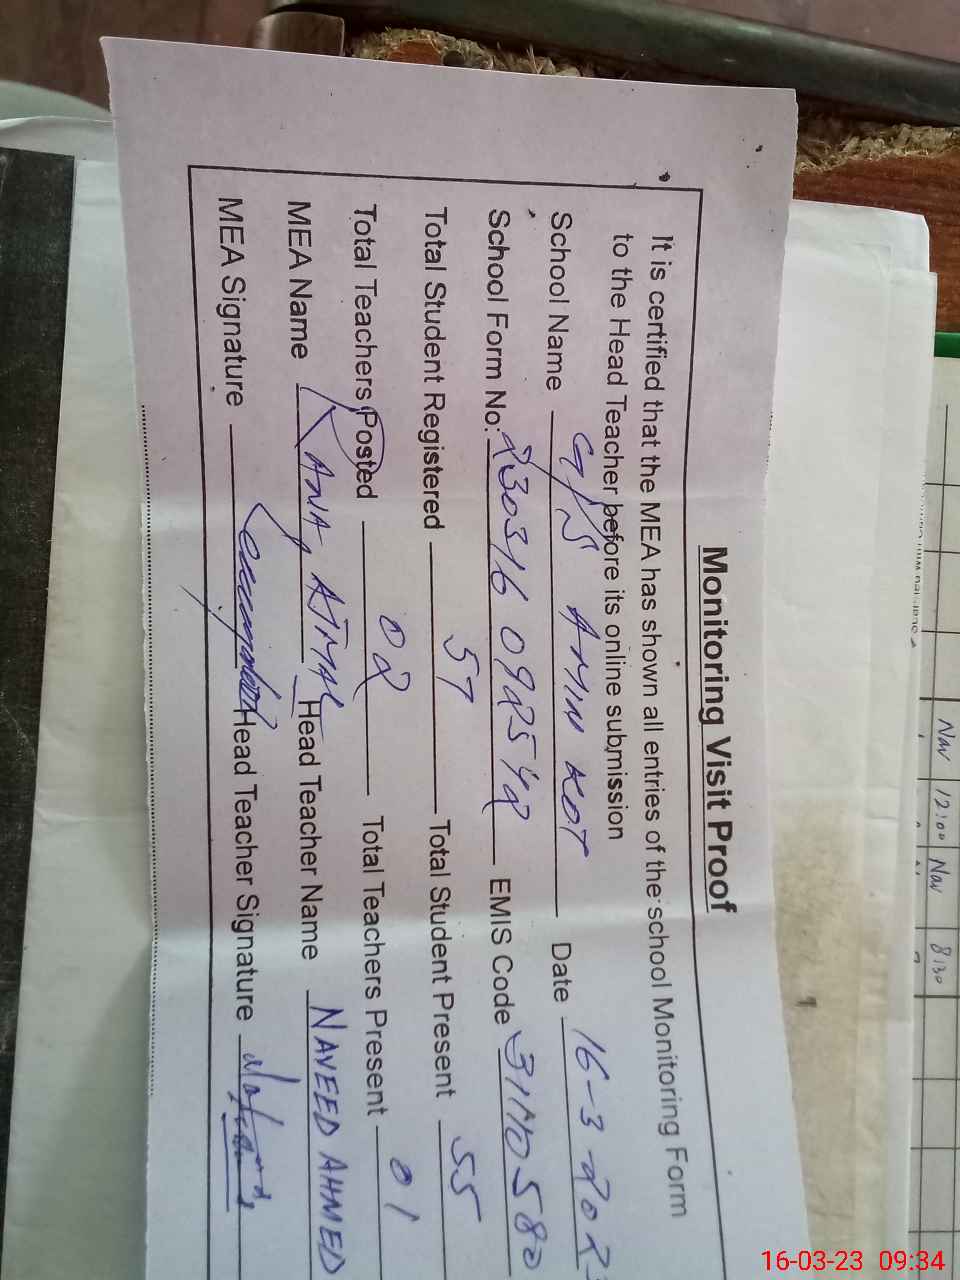 Monitoring Visit Proof
It is certified that the MEA has shown all entries of the school Monitoring Form
to the Head Teacher before its online submission
School Name G/S AMIN KOT Date 16-3-202
School Form No: 230316 0925542 EMIS Code 31110580
Total Student Registered 57 Total Student Present 55
Total Teachers Posted 02 Total Teachers Present 01
MEA Name RANA AJMAL Head Teacher Name NAVEED AHMED
MEA Signature Head Teacher Signature
Nav 12:00 Nav 8:30
16-03-23 09:34